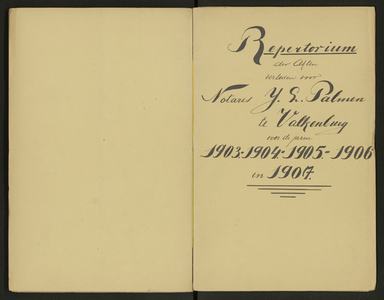 Repertorium
der Akten
verleden voor
Notaris J. L. Palmen
te Valkenburg
voor de jaren
1903-1904-1905-1906
en 1907.